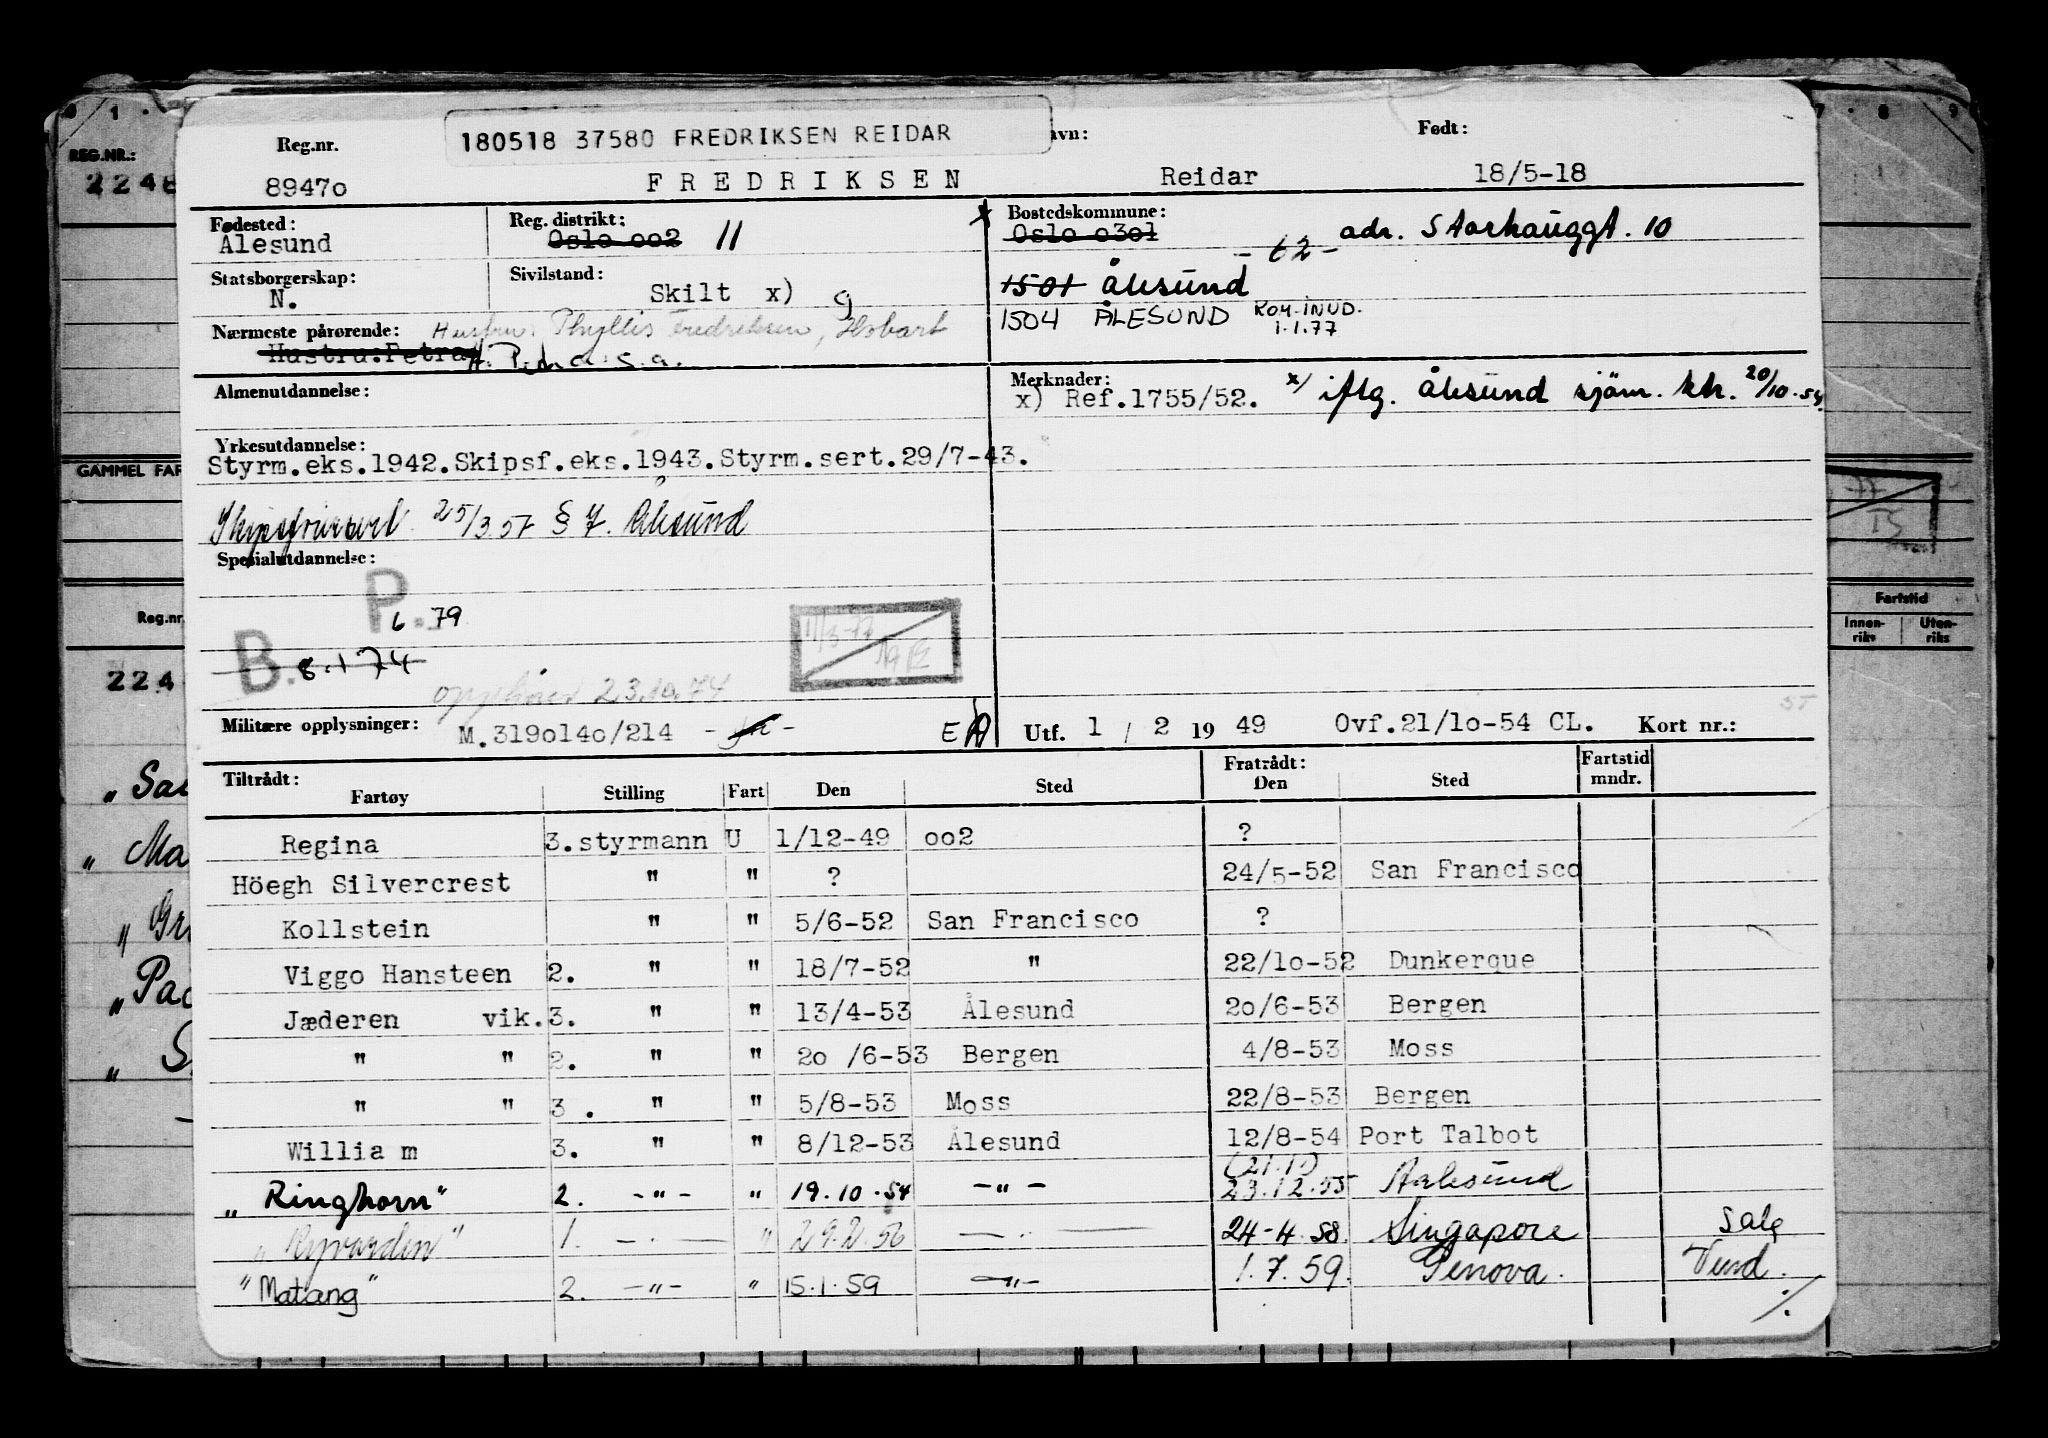 180518 37580 FREDRIKSEN REIDAR
Reg.nr. avn: Født:
8947o FREDRIKSEN Reidar 18/5-18
Fødested: Reg. distrikt: x Bostedskommune:
Ålesund Oslo oo2 11 Oslo o3o1 - 62 - adr. Storhauggt. 10
Statsborgerskap: Sivilstand: 1501 Ålesund
N. Skilt x) g 1504 ÅLESUND KOM.INND. 1.1.77
Nærmeste pårørende: Hustru: Phyllis Fredriksen, Hobart
Hustru: Petra H. Petra s.a.
Almenutdannelse: Merknader:
x) Ref.1755/52. x/ iflg. Ålesund sjøm. ktr. 20/10-54
Yrkesutdannelse:
Styrm.eks.1942.Skipsf.eks.1943.Styrm.sert.29/7-43.
25/3.57 § 7. Ålesund
Spesialutdannelse:
P. 6 79
B. 8.1 74
opphører 23.10.74
11/3-77
Militære opplysninger: M.319o14o/214 E Utf. 1 / 2 19 49 Ovf.21/1o-54 CL. Kort nr.:
Tiltrådt: Fratrådt: Fartstid
Fartøy Stilling Fart Den Sted Den Sted mndr.
Regina 3.styrmann U 1/12-49 oo2 ?
Höegh Silvercrest " " ? 24/5-52 San Francisco
Kollstein " " 5/6-52 San Francisco ?
Viggo Hansteen 2. " " 18/7-52 " 22/1o-52 Dunkerque
Jæderen vik.3. " " 13/4-53 Ålesund 2o/6-53 Bergen
" " 2. " " 2o /6-53 Bergen 4/8-53 Moss
" " 3 . " " 5/8-53 Moss 22/8-53 Bergen
Willia m 3. " " 8/12-53 Ålesund 12/8-54 Port Talbot
"Ringhorn" 2. -"- " 19.10.54 -"- (21.1) 23.12.55 Aalesund
"Ryvarden" 1. - " - " 29.2.56 - " - 24-4.58. Singapore Salg
"Matang" 2. -"- " 15.1.59 -"- 1.7.59. Genova. Vend.
REG.NR.:
2248
GAMMEL FAR
Reg.nr
224
Fartstid
Innen-riks Uten-riks